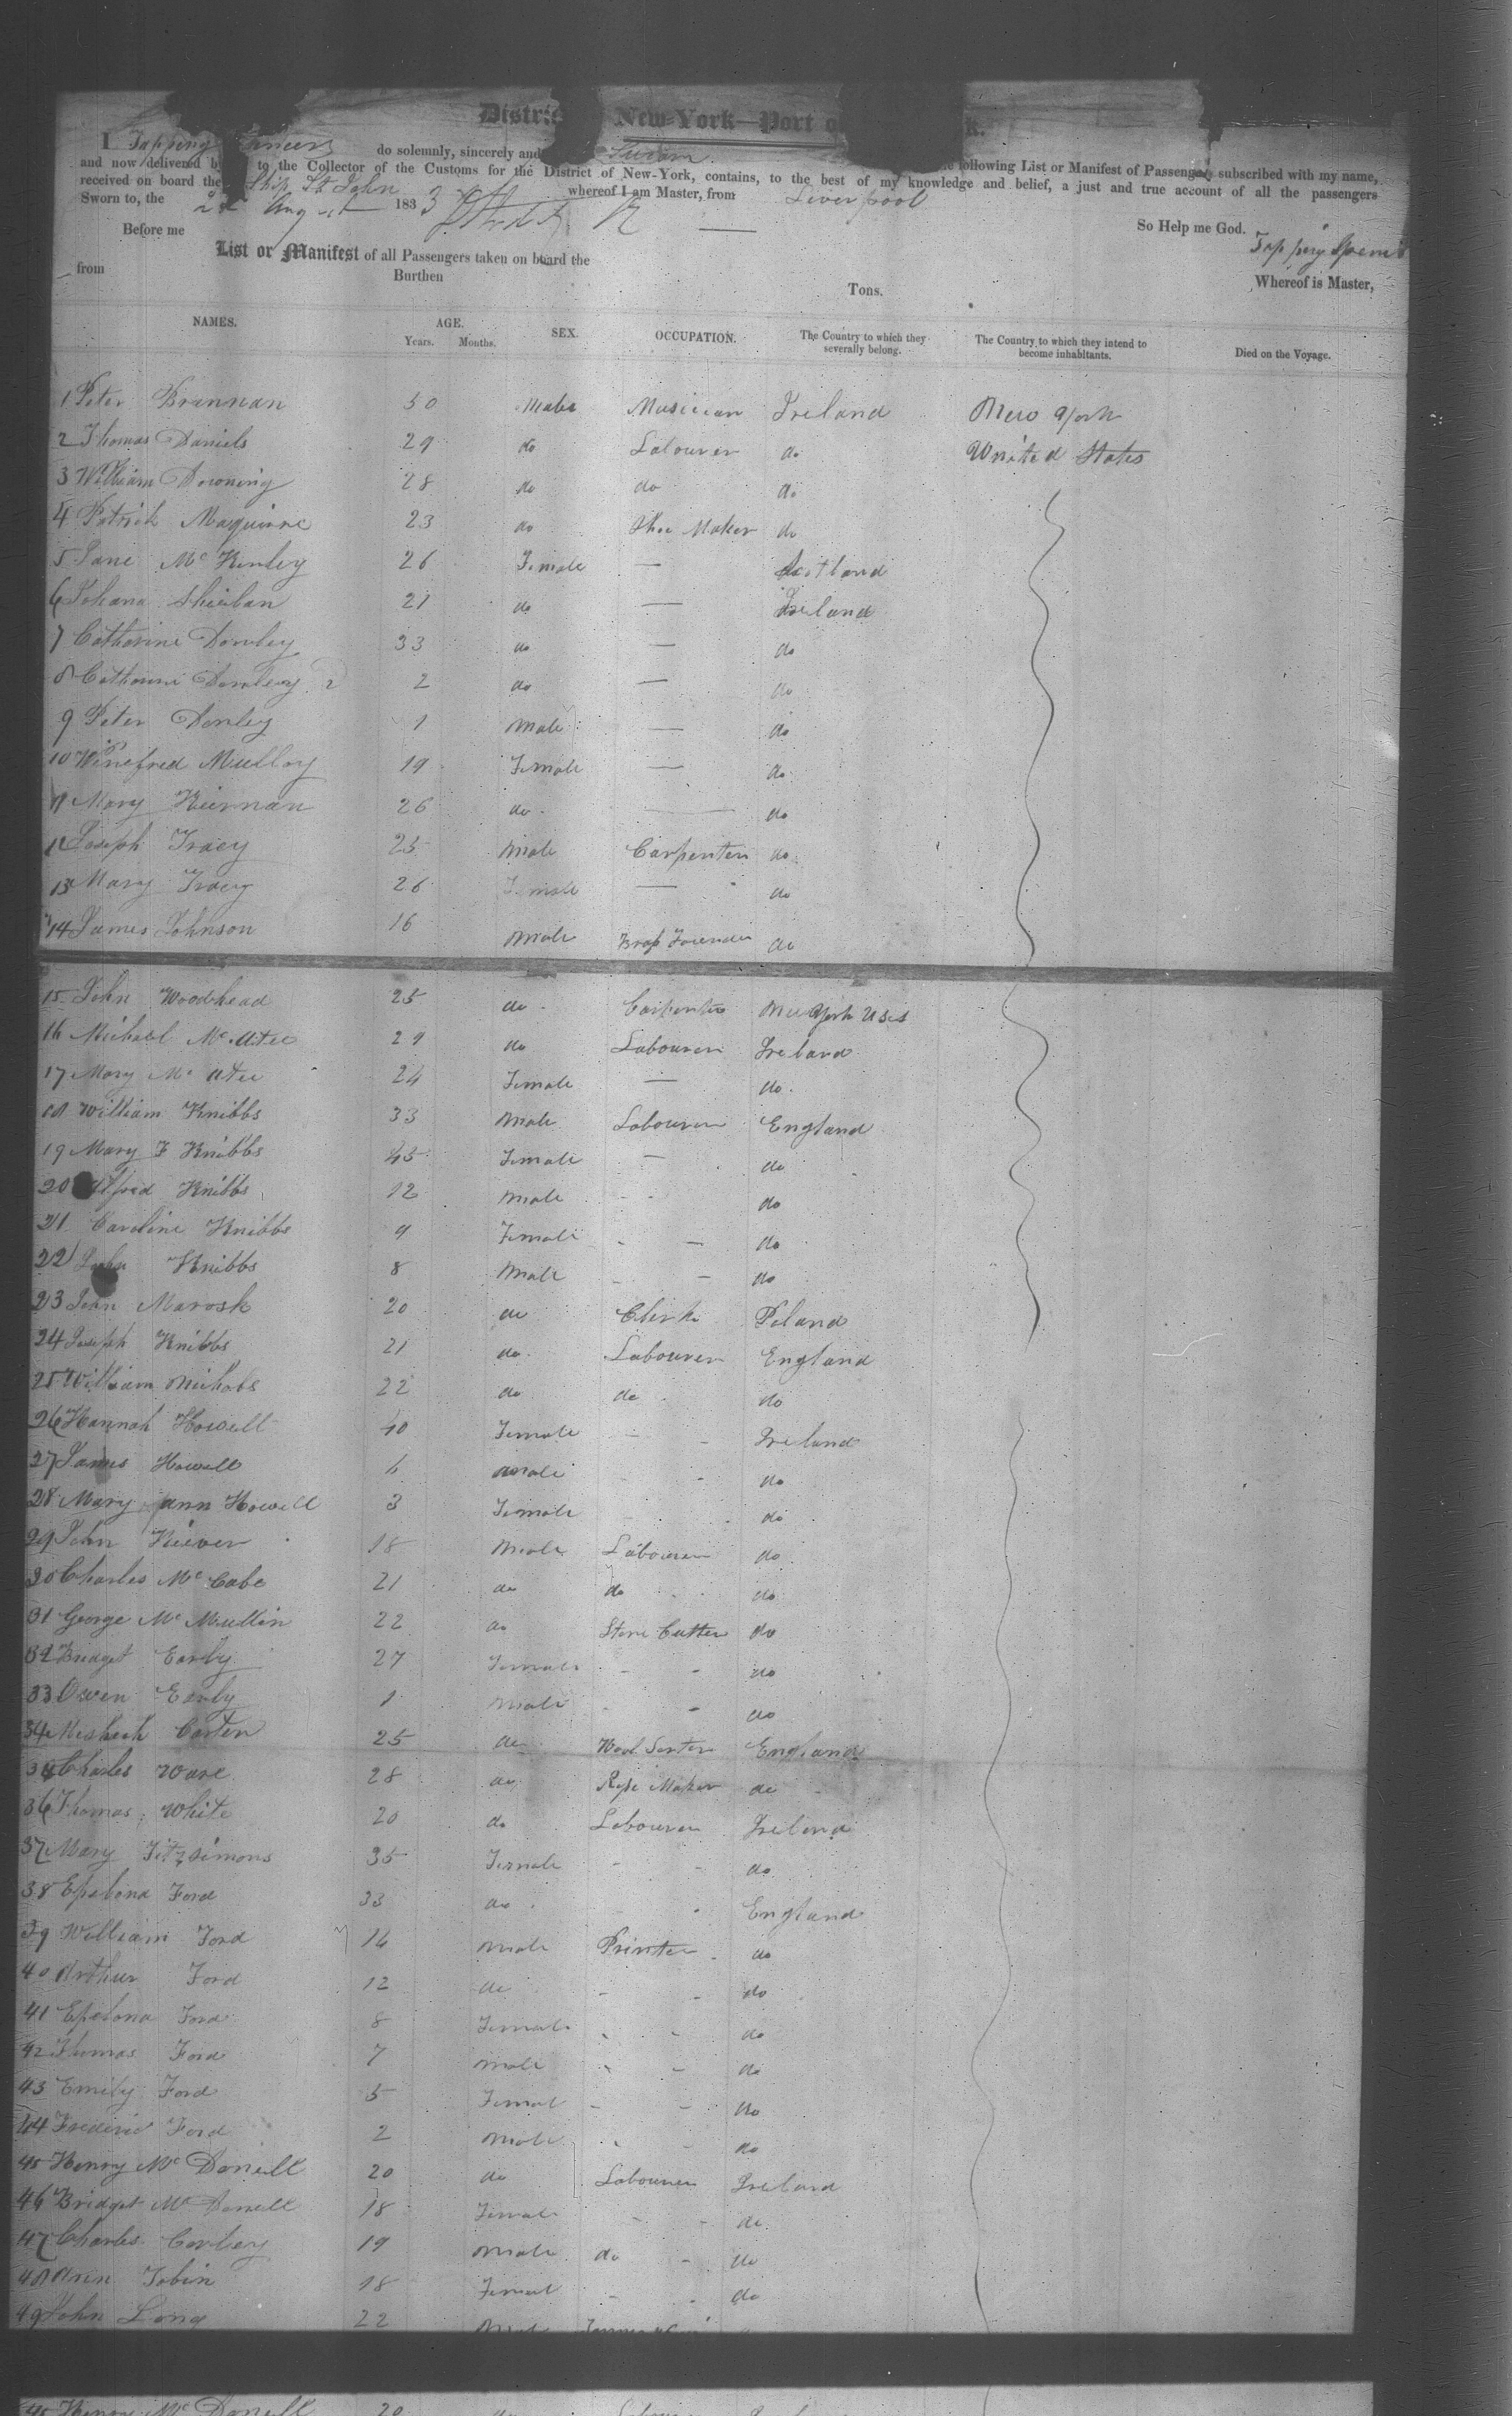 District New-York—Port o k.
I Tapping do solemnly, sincerely and Swear following List or Manifest of Passengers subscribed with my name,
and now delivered b to the Collector of the Customs for the District of New-York, contains, to the best of my knowledge and belief, a just and true account of all the passengers
received on board the Ship St John whereof I am Master, from Liverpool
Sworn to, the 2d August 1833
So Help me God.
Before me
Tapping
List or Manifest of all Passengers taken on board the
Whereof is Master,
from Burthen Tons.
NAMES. AGE. SEX. OCCUPATION. The Country to which they severally belong. The Country to which they intend to become inhabitants. Died on the Voyage.
Years. Months.
1 Peter Brannan 50 Male Musician Ireland New York
2 Thomas Daniels 29 do Labourer do United States
3 William Downing 28 do do do
4 Patrick Maguirre 23 do Shoe Maker do
5 Jane Mc Kenley 26 Female — Scotland
6 Johana Sheilan 21 do — Ireland
7 Catharine Donley 33 do — do
8 Catharine Donley 2 do — do
9 Peter Donley 1 Male — do
10 Winefred Mulloy 19 Female — do
11 Mary Kiernan 26 do — do
12 Joseph Tracy 25 Male Carpenter do
13 Mary Tracy 26 Female — do
14 James Johnson 16 Male Brass Founder do
15 John Woodhead 25 do Carpenter New York U S
16 Michael Mc Atee 29 do Labourer Ireland
17 Mary Mc Atee 24 Female — do
18 William Knibbs 33 Male Labourer England
19 Mary F Knibbs 45 Female — do
20 Alfred Knibbs 12 Male - - do
21 Caroline Knibbs 9 Female - — do
22 John Knibbs 8 Male - - do
23 John Marosk 20 do Clerk Poland
24 Joseph Knibbs 21 do Labourer England
25 William Nichols 22 do do do
26 Hannah Howell 40 Female - - Ireland
27 James Howell 6 Male - - do
28 Mary Ann Howell 3 Female - - do
29 John Kiever 18 Male Labourer do
30 Charles Mc Cabe 21 do do do
31 George Mc Mullin 22 do Stone Cutter do
32 Bridget Early 27 Female - - do
33 Owen Early 1 Male - - do
34 Meshech Carter 25 do Wool Sorter England
35 Charles Ware 28 do Rope Maker do
36 Thomas White 20 do Labourer Ireland
37 Mary Fitzsimons 35 Female - - do
38 Ford 33 do - England
39 William Ford 14 Male Printer do
40 Arthur Ford 12 do - - do
41 Ford 8 Female - - do
42 Thomas Ford 7 Male - - do
43 Emily Ford 5 Female - - do
44 Frederic Ford 2 Male - - do
45 Henry Mc Donell 20 do Labourer Ireland
46 Bridget Mc Donell 18 Female - - do
47 Charles Corley 19 Male do - do
48 Ann Tobin 18 Female - - do
49 John Long 22 Male
45 Henry Mc Donell 20